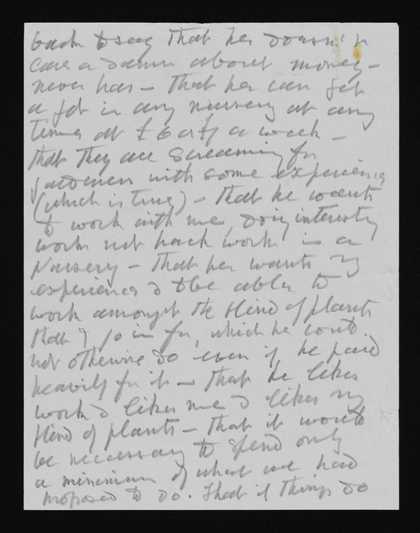 back to say that he doesn't
care a damn about money -
never has - that he can get
a job in any nursery at any
time at £6 or £7 a week -
that they are screaming for
gardeners with some experience
(which is true) - that he wants
to work with me, doing interesting
work not hack work in a
Nursery - that he wants my
experience & to be able to
work amongst the kind of plants
that I go in for, which he could
not otherwise do even if he paid
heavily for it - that he likes
work & likes me & likes my
kind of plants - that it would
be necessary to spend only
a minimum of what we had
proposed to do. That if things do